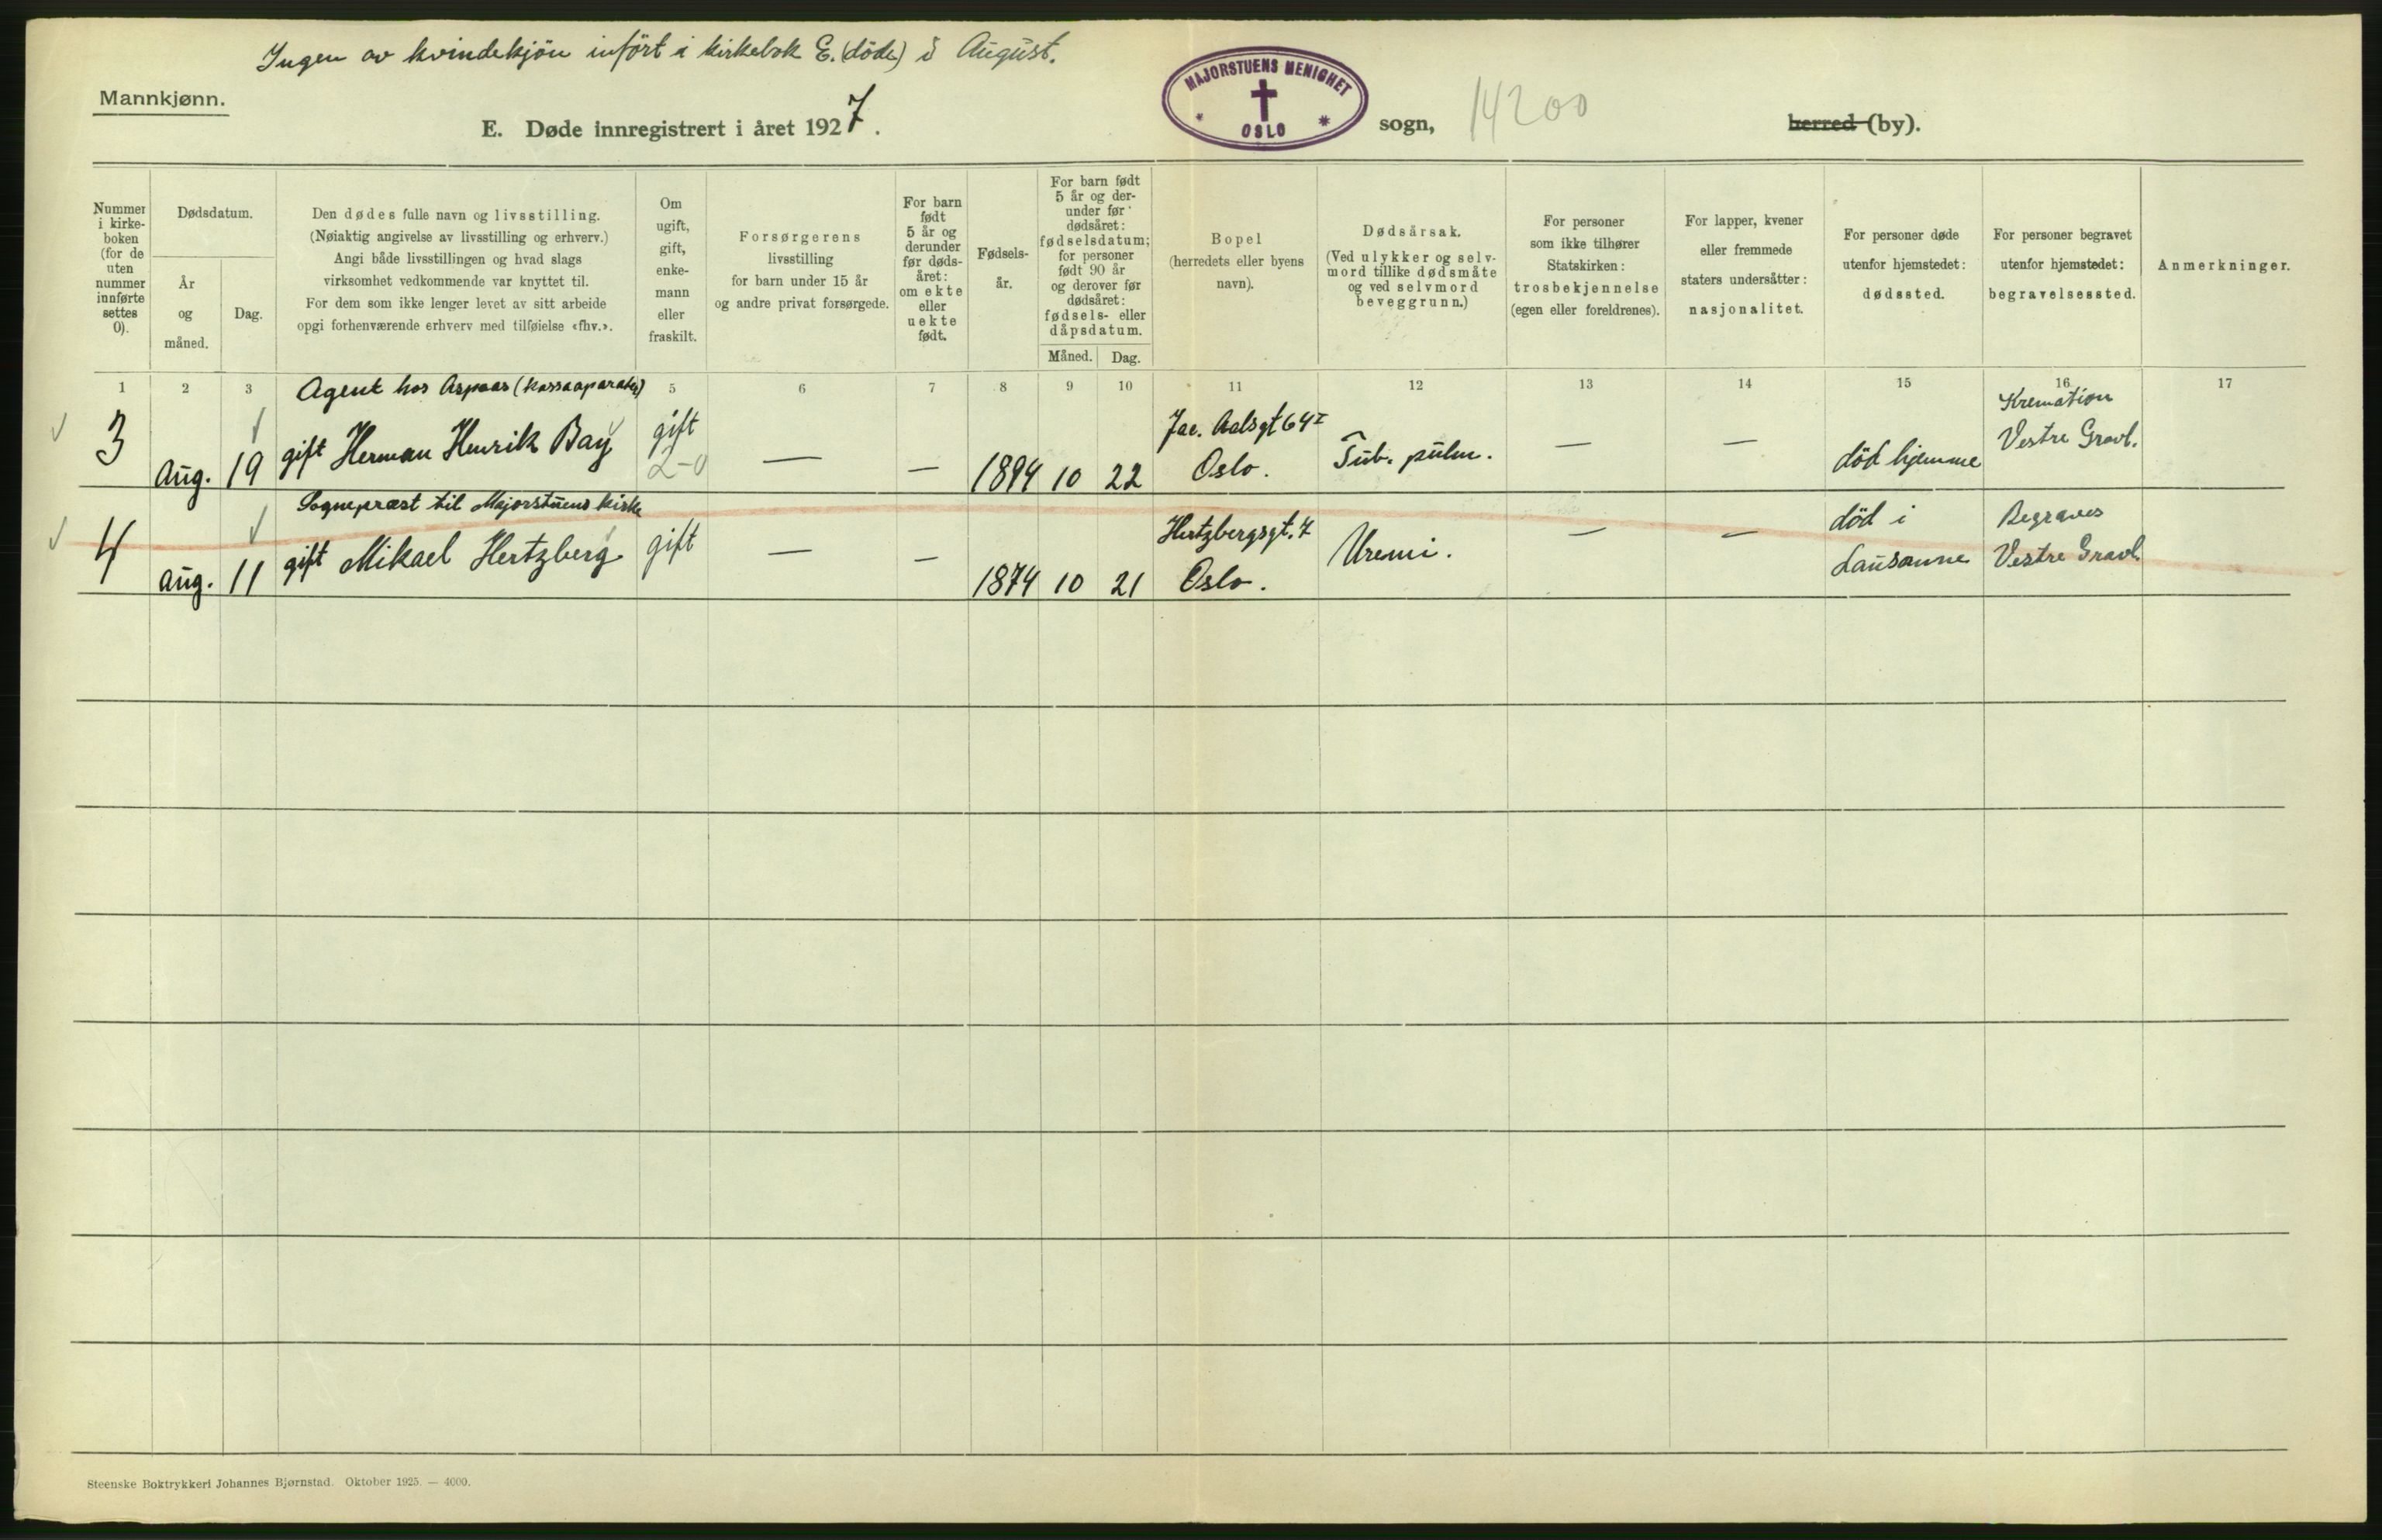 Ingen av kvindekjön infört i kirkebok E. (döde) i August.
Mannkjønn.
E. Døde innregistrert i året 1927.
MAJORSTUENS MENIGHET
OSLO
sogn,
14200
herred (by).
Nummer
i kirke-
boken
(for de
uten
nummer
innførte
settes
0).
Dødsdatum.
År
og
måned.
Dag.
Den dødes fulle navn og livsstilling.
(Nøiaktig angivelse av livsstilling og erhverv.)
Angi både livsstillingen og hvad slags
virksomhet vedkommende var knyttet til.
For dem som ikke lenger levet av sitt arbeide
opgi forhenværende erhverv med tilføielse «fhv.».
Om
ugift,
gift,
enke-
mann
eller
fraskilt.
Forsørgerens
livsstilling
for barn under 15 år
og andre privat forsørgede.
For barn
født
5 år og
derunder
før døds-
året:
om ekte
eller
uekte
født.
Fødsels-
år.
For barn født
5 år og der-
under før
dødsåret:
fødselsdatum;
for personer
født 90 år
og derover før
dødsåret:
fødsels- eller
dåpsdatum.
Måned. Dag.
Bopel
(herredets eller byens
navn).
Dødsårsak.
(Ved ulykker og selv-
mord tillike dødsmåte
og ved selvmord
beveggrunn.)
For personer
som ikke tilhører
Statskirken:
trosbekjennelse
(egen eller foreldrenes).
For lapper, kvener
eller fremmede
staters undersåtter:
nasjonalitet.
For personer døde
utenfor hjemstedet:
dødssted.
For personer begravet
utenfor hjemstedet:
begravelsessted.
Anmerkninger.
1 2 3 5 6 7 8 9 10 11 12 13 14 15 16 17
Agent hos Aspaas (kassaaparater)
3 Aug. 19 gift Herman Henrik Bay gift — — 1894 10 22
2-0
Jac. Aalsgt 64 I
Oslo.
Tub. pulm. — —
död hjemme
Kremation
Vestre Gravl.
Sognepræst til Majorstuens kirke
4 Aug. 11 gift Mikael Hertzberg gift — — 1874 10 21
Hertzbergsgt. 7
Oslo.
Uremi. — —
död i
Lausanne
Begraves
Vestre Gravl.
Steenske Boktrykkeri Johannes Bjørnstad. Oktober 1925. — 4000.